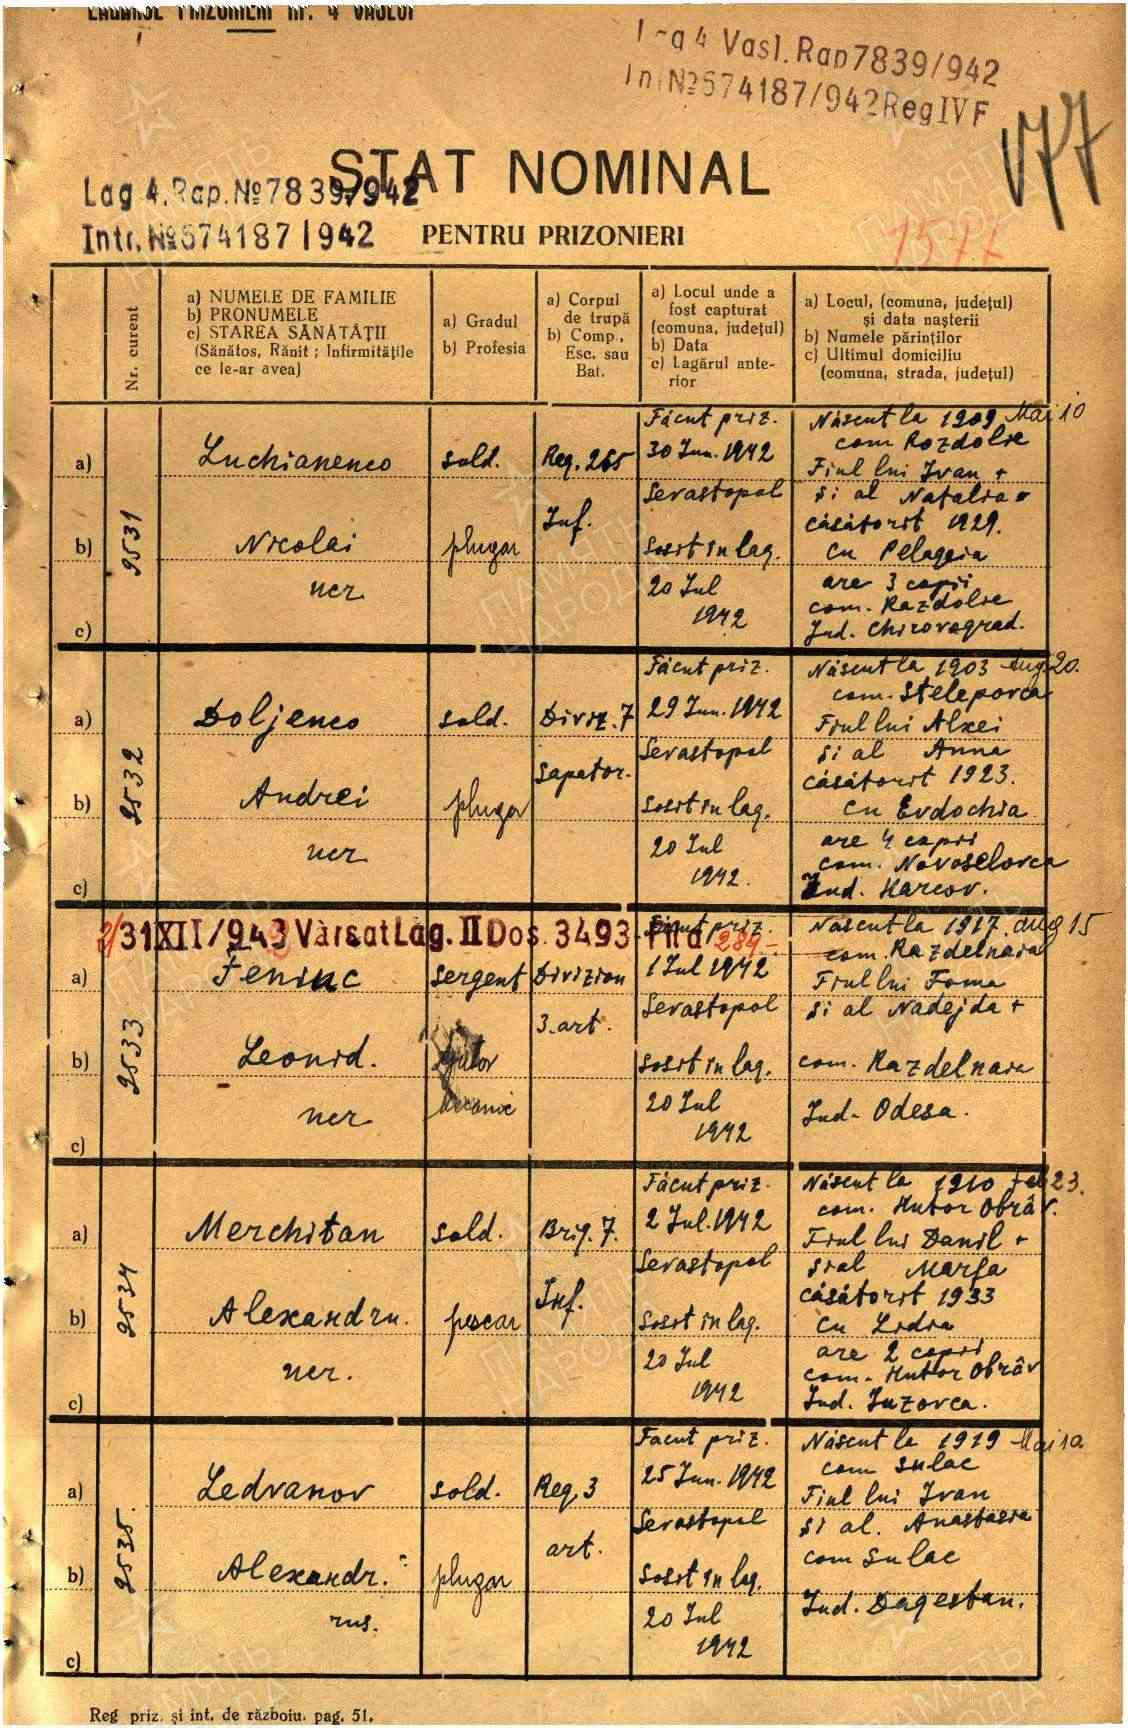 LAGĂRUL PRIZONIERI Nr. 4 VASLUI
L-a 4 Vasl. Rap 7839/942
Int № 574187/942 Reg IV F
177
STAT NOMINAL
Lag 4. Rap. № 7839/942
Intr. № 574187/942
PENTRU PRIZONIERI
Nr. curent
a) NUMELE DE FAMILIE
b) PRONUMELE
c) STAREA SĂNĂTĂȚII
(Sănătos, Rănit; Infirmitățile
ce le-ar avea)
a) Gradul
b) Profesia
a) Corpul
de trupă
b) Comp.,
Esc. sau
Bat.
a) Locul unde a
fost capturat
(comuna, județul)
b) Data
c) Lagărul ante-
rior
a) Locul, (comuna, județul)
și data nașterii
b) Numele părinților
c) Ultimul domiciliu
(comuna, strada, județul)
2531
a)
b)
c)
Luchianenco
Nicolai
ucr
sold.
plugar
Reg. 265
Inf.
Făcut priz.
30 Iun. 1942
Sevastopol
Sosit în lag.
20 Iul
1942
Născut la 1909 Mai 10
com Rozdolie
Fiul lui Ivan +
și al Natalia +
căsătorit 1929.
cu Pelageia
are 3 copii
com. Razdolie
Jud. Chirovograd.
2532
a)
b)
c)
Doljenco
Andrei
ucr
sold.
plugar
Diviz. 7
sapator.
Făcut priz.
29 Iun. 1942
Sevastopol
Sosit în lag.
20 Iul
1942.
Născut la 1903 Aug 20.
com. Steleporca
Fiul lui Alxei
și al Anna
căsătorit 1923.
cu Evdochia
are 4 copii
com. Novoselovca
Jud. Harcov.
31 XII/943 Vărsat Lag. II Dos. 3493 Fila 289-
2533
a)
b)
c)
Feniuc
Leonid.
ucr
sergent
mecanic
Divizion
3. art.
Făcut priz.
1 Iul 1942
Sevastopol
Sosit în lag.
20 Iul
1942
Născut la 1917. Aug 15
com. Razdelnaia
Fiul lui Foma
și al Nadejda +
com. Razdelnaia
Jud. Odesa.
2534
a)
b)
c)
Merchitan
Alexandru.
ucr.
sold.
pescar
Brig. 7.
Inf.
Făcut priz.
2 Iul. 1942
Sevastopol
Sosit în lag.
20 Iul
1942
Născut la 1910 Feb 23.
com. Hutor Obrâv.
Fiul lui Danil +
și al Marfa
căsătorit 1933
cu Lidia
are 2 copii
com. Hutor Obrâv
Jud. Iuzovca.
2535.
a)
b)
c)
Ledvanov
Alexandr.
rus.
sold.
plugar
Reg 3
art.
Făcut priz.
25 Iun. 1942
Sevastopol
Sosit în lag.
20 Iul
1942
Născut la 1919 Mai 10
com Sulac
Fiul lui Ivan
și al. Anastasia
com Sulac
Jud. Dagestan.
Reg priz. și int. de războiu. pag. 51.
ПАМЯТЬ
НАРОДА